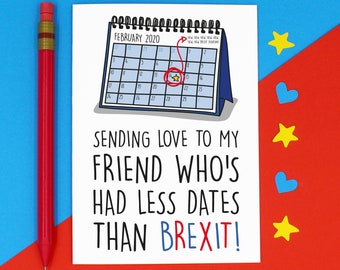 FEBRUARY 2020
SENDING LOVE TO MY
FRIEND WHO'S
HAD LESS DATES
THAN BREXIT!